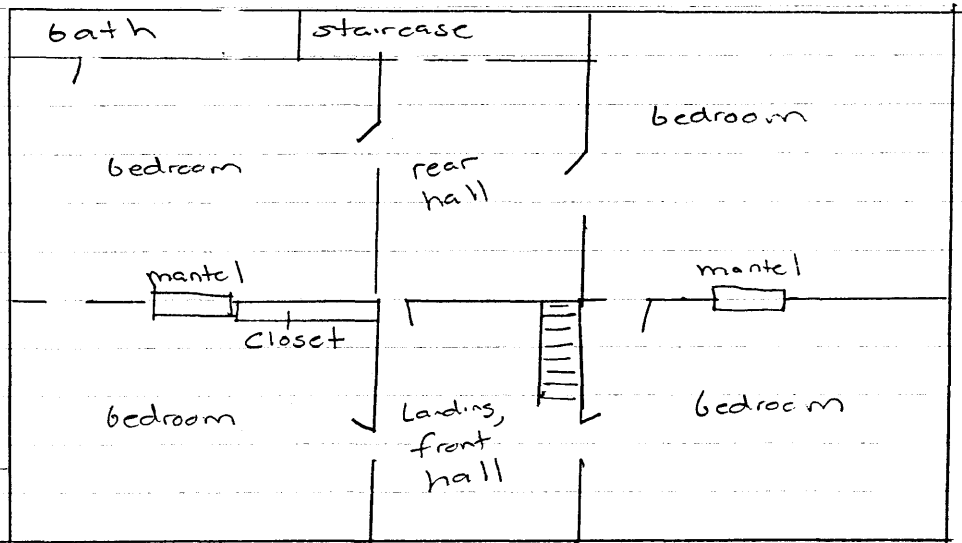 bath
staircase
bedroom
bedroom
rear
hall
mantel
mantel
closet
bedroom
Landing,
front
hall
bedroom